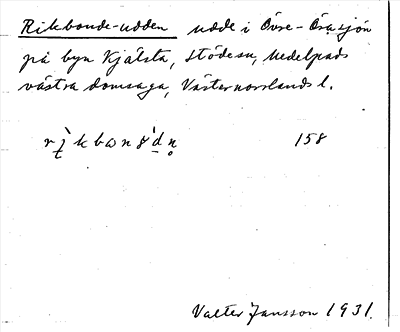 Rikbonde-udden udde i Övre-Örasjön
på byn Kjälsta, Stödesn, Medelpads
västra domsaga, Västernorrlands l.
158
Valter Jansson 1931.